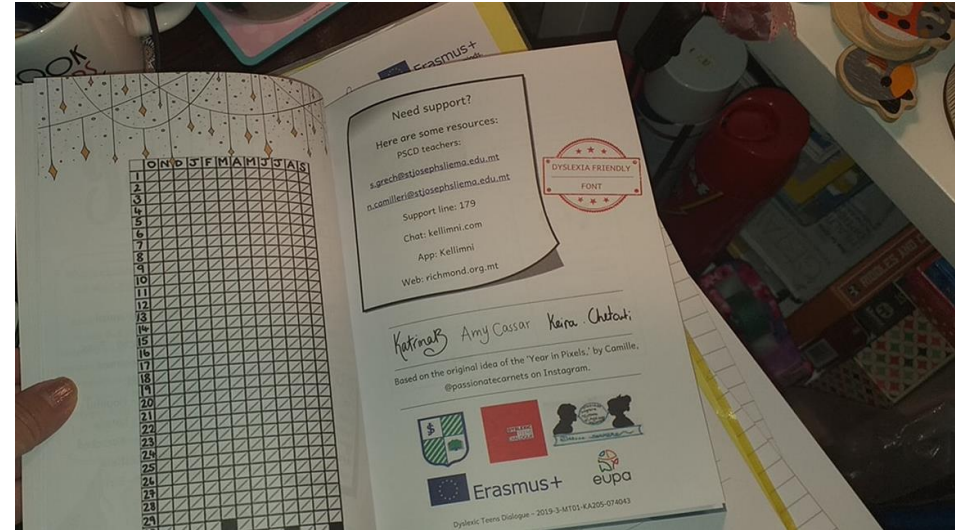 OOK
Erasmus+
O N D J F M A M J J A S
1
2
3
4
5
6
7
8
9
10
11
12
13
14
15
16
17
18
19
20
21
22
23
24
25
26
27
28
29
Need support?
Here are some resources:
PSCD teachers:
s.grech@stjosephsliema.edu.mt
n.camilleri@stjosephsliema.edu.mt
Support line: 179
Chat: kellimni.com
App: Kellimni
Web: richmond.org.mt
DYSLEXIA FRIENDLY
FONT
KatrinaB Amy Cassar Keira Chetcuti
Based on the original idea of the 'Year in Pixels,' by Camille,
@passionatecarnets on Instagram.
$
Erasmus+
eupa
Dyslexic Teens Dialogue - 2019-3-MT01-KA205-074043